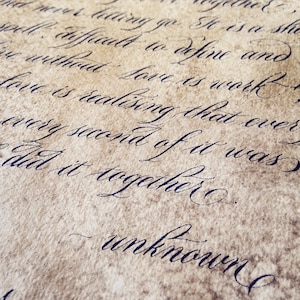 together
and never letting go. It is a sha
well. difficult to define and
live without. Love is work
Love is realising that every
every second of it was
did it together.
unknown